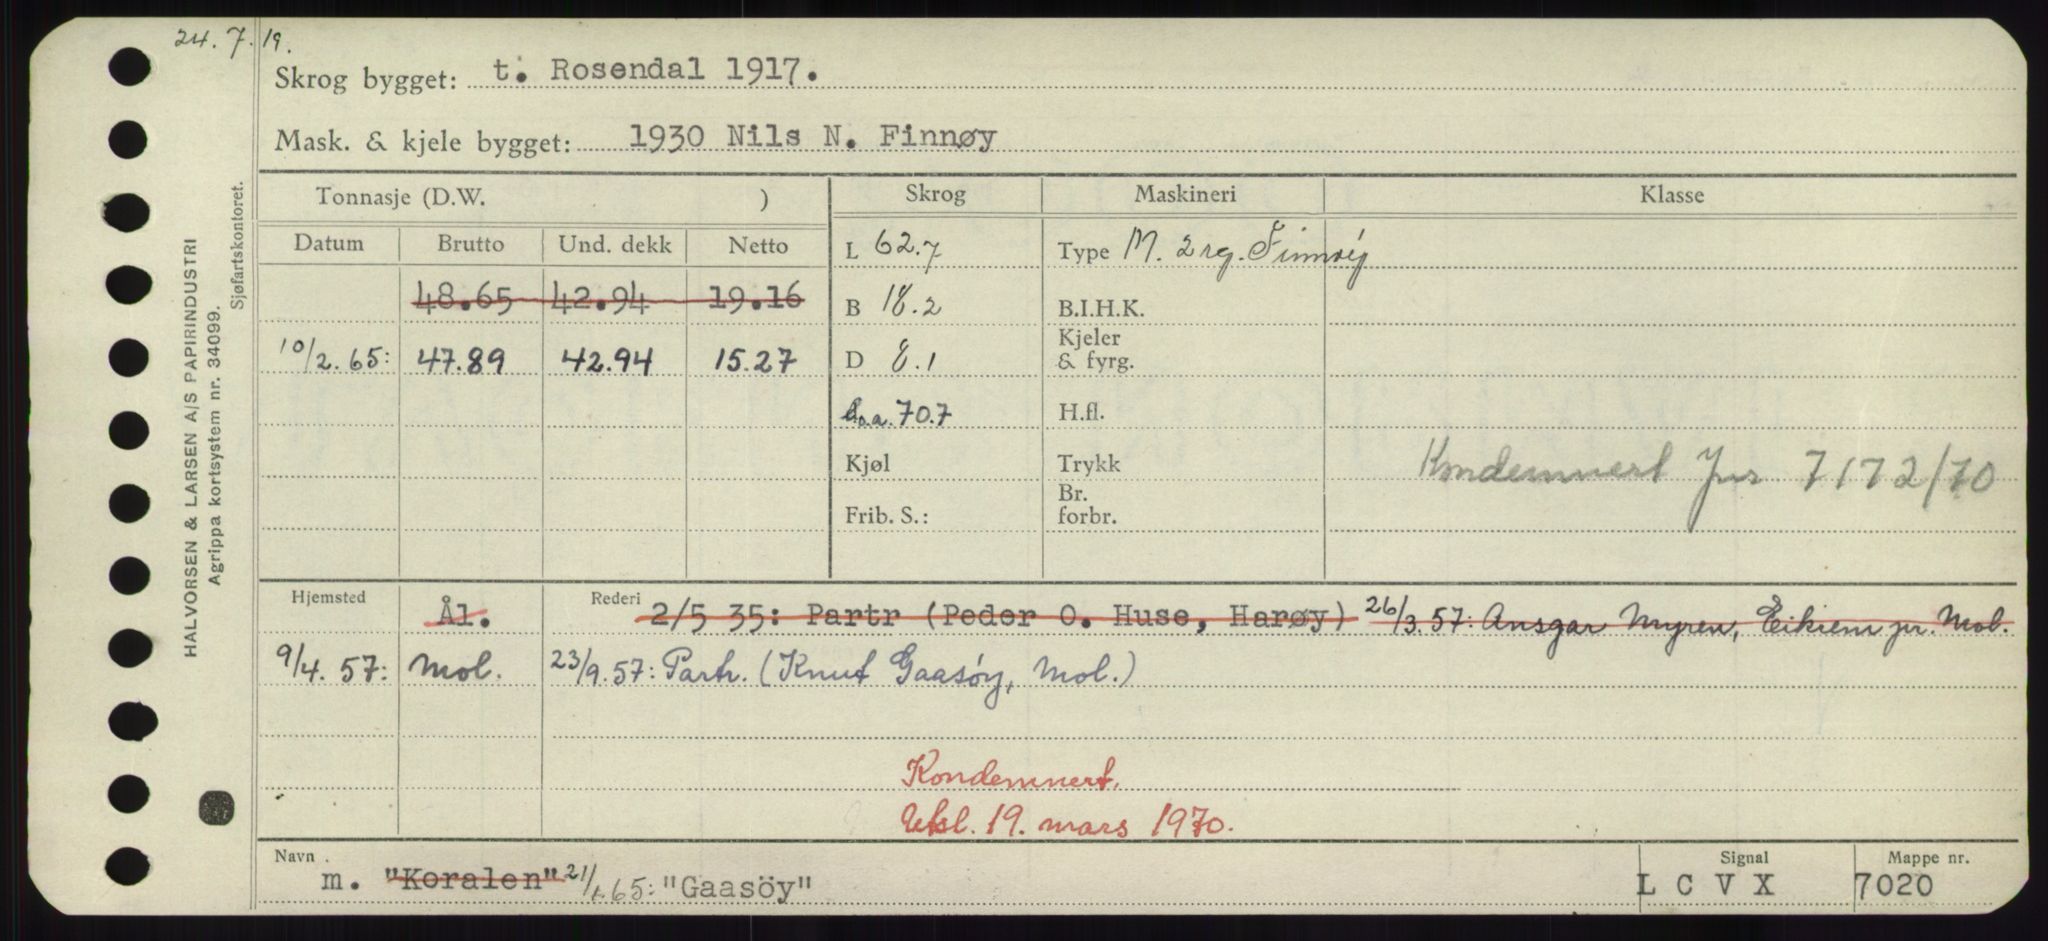 24. 7. 19.
Skrog bygget: t. Rosendal 1917.
Mask. & kjele bygget: 1930 Nils N. Finnøy
HALVORSEN & LARSEN A/S PAPIRINDUSTRI
Agrippa kortsystem nr. 34099.
Sjøfartskontoret.
Tonnasje (D.W. ) Skrog Maskineri Klasse
Datum Brutto Und. dekk Netto
L 62.7 Type M. 2 rg. Finnöy
48.65 42.94 19.16
B 18.2 B.I.H.K.
10/2. 65: 47.89 42.94 15.27
D 8.1 Kjeler & fyrg.
L.o.a. 70.7 H.fl.
Kjøl Trykk
Kondemnert Jnr 7172/70
Frib. S.: Br. forbr.
Hjemsted Ål. Rederi 2/5 35: Partr (Peder O. Huse, Harøy) 26/3. 57: Ansgar Myren, Eikrem pr. Mol.
9/4. 57: Mol. 23/9. 57: Partr. (Knut Gaasöy, Mol.)
Kondemnert.
Utsl. 19. mars 1970.
Navn Signal Mappe nr.
m. "Koralen" 21/1. 65: "Gaasöy" L C V X 7020